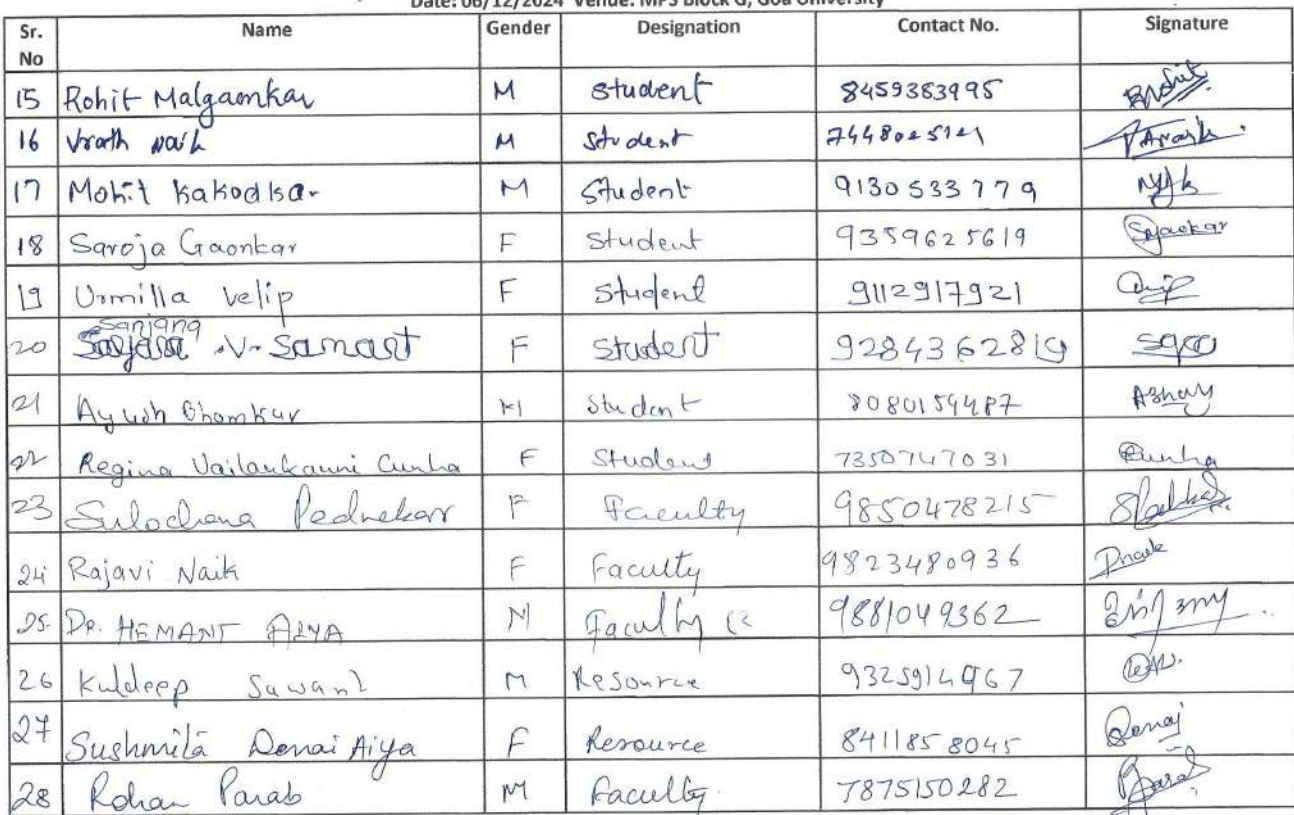 Date: 06/12/2024 Venue: MPS Block G, Goa University
Sr. No Name Gender Designation Contact No. Signature
15 Rohit Malgaonkar M Student 8459383995
16 Vrath Naik M Student 7448025121
17 Mohit Kakodkar M Student 9130533779
18 Saroja Gaonkar F Student 9359625619 Sgaonkar
19 Urmilla Velip F Student 9112917921
Sanjana
20 V. Samant F Student 9284362819
21 Ayush M Student 8080159487
22 Regina Vailankanni Cunha F Student 7350747031 Cunha
23 Sulochana Pednekar F Faculty 9850478215
24 Rajavi Naik F Faculty 9823480936
25. DR. HEMANT M Faculty 9881049362
26 Kuldeep Sawant M Resource 9325914967
27 Sushmita Denai Aiya F Resource 8411858045 Denai
28 Rohan Parab M Faculty. 7875150282 Parab